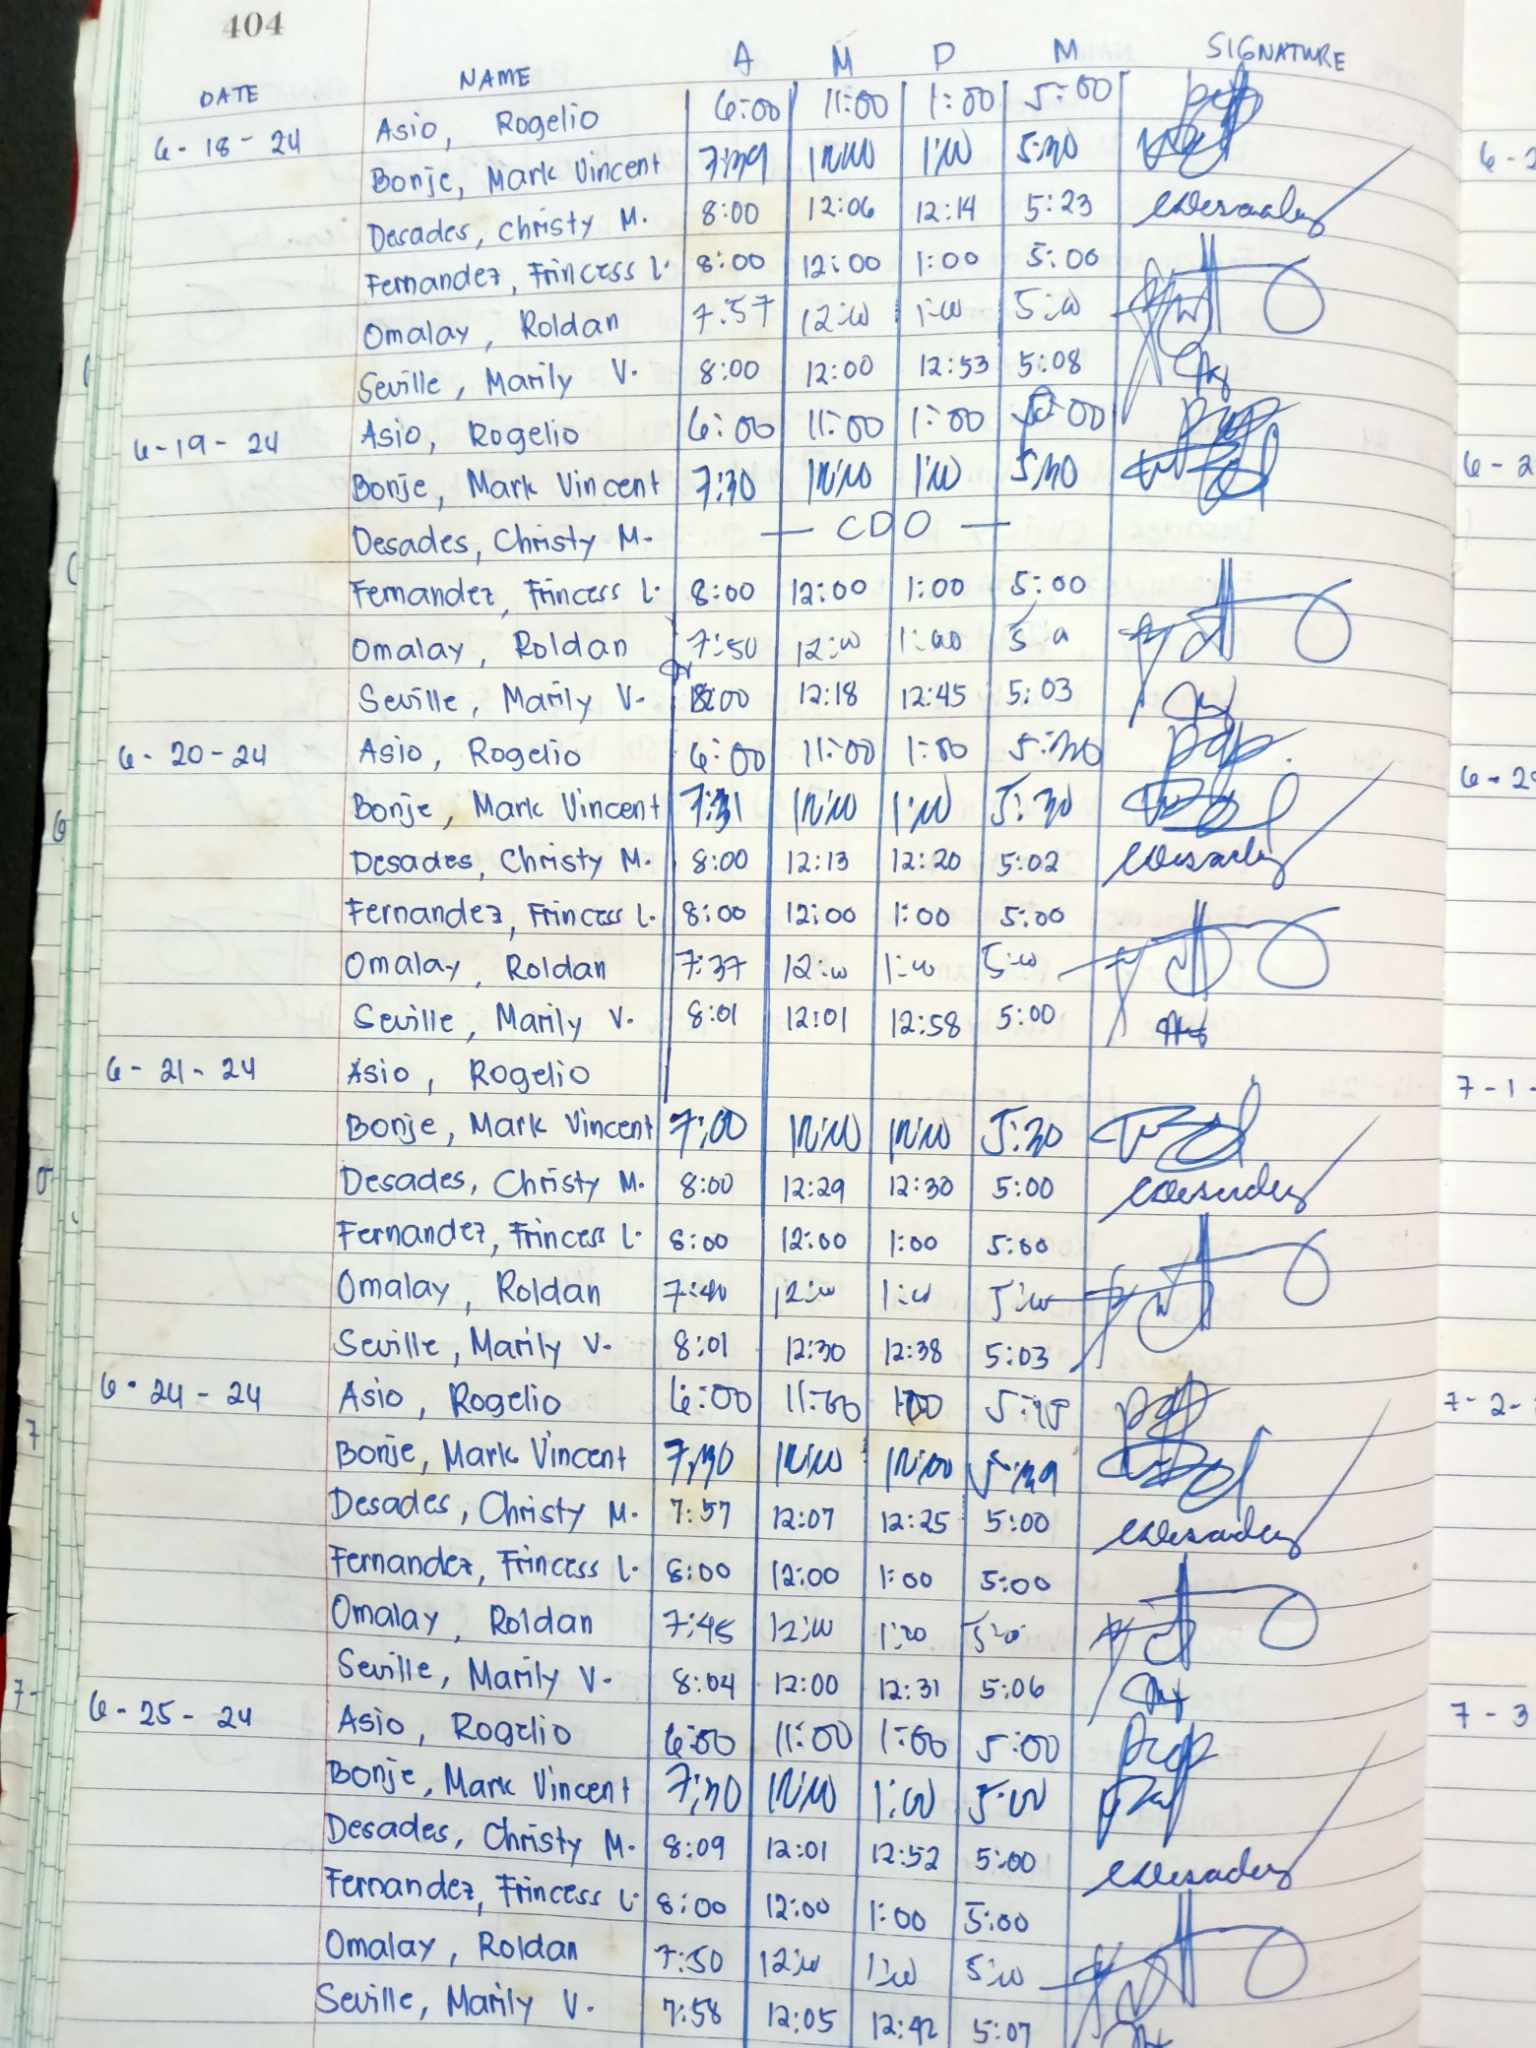 404
DATE NAME A M P M SIGNATURE
6-18-24 Asio, Rogelio 6:00 11:00 1:00 5:00
Bonje, Mark Vincent 7:39 12:00 1:00 5:30
Desades, Christy M. 8:00 12:06 12:14 5:23
Fernandez, Frincess L. 8:00 12:00 1:00 5:00
Omalay, Roldan 7:57 12:00 1:00 5:00
Seville, Marily V. 8:00 12:00 12:53 5:08
6-19-24 Asio, Rogelio 6:00 11:00 1:00 5:00
Bonje, Mark Vincent 7:30 12:00 1:00 5:30
Desades, Christy M. — CDO —
Fernandez, Frincess L. 8:00 12:00 1:00 5:00
Omalay, Roldan 7:50 12:00 1:00
Seville, Marily V. 8:00 12:18 12:45 5:03
6-20-24 Asio, Rogelio 6:00 11:00 1:00 5:30
Bonje, Mark Vincent 7:31 12:00 1:00 5:30
Desades, Christy M. 8:00 12:13 12:20 5:02
Fernandez, Frincess L. 8:00 12:00 1:00 5:00
Omalay, Roldan 7:37 12:00 1:00 5:00
Seville, Marily V. 8:01 12:01 12:58 5:00
6-21-24 Asio, Rogelio
Bonje, Mark Vincent 7:00 12:00 12:00 5:30
Desades, Christy M. 8:00 12:29 12:30 5:00
Fernandez, Frincess L. 8:00 12:00 1:00 5:00
Omalay, Roldan 7:40 12:00 1:00 5:00
Seville, Marily V. 8:01 12:30 12:38 5:03
6-24-24 Asio, Rogelio 6:00 11:00 1:00
Bonje, Mark Vincent 7:30 12:00 12:00 5:39
Desades, Christy M. 7:57 12:07 12:25 5:00
Fernandez, Frincess L. 8:00 12:00 1:00 5:00
Omalay, Roldan 7:45 12:00
Seville, Marily V. 8:04 12:00 12:31 5:06
6-25-24 Asio, Rogelio 6:00 11:00 1:00 5:00
Bonje, Mark Vincent 7:30 12:00 1:00 5:00
Desades, Christy M. 8:09 12:01 12:52 5:00
Fernandez, Frincess L. 8:00 12:00 1:00 5:00
Omalay, Roldan 7:50 12:00 1:00 5:00
Seville, Marily V. 7:58 12:05 12:42 5:07
6-2
6-2
7-1-
7-2-
7-3